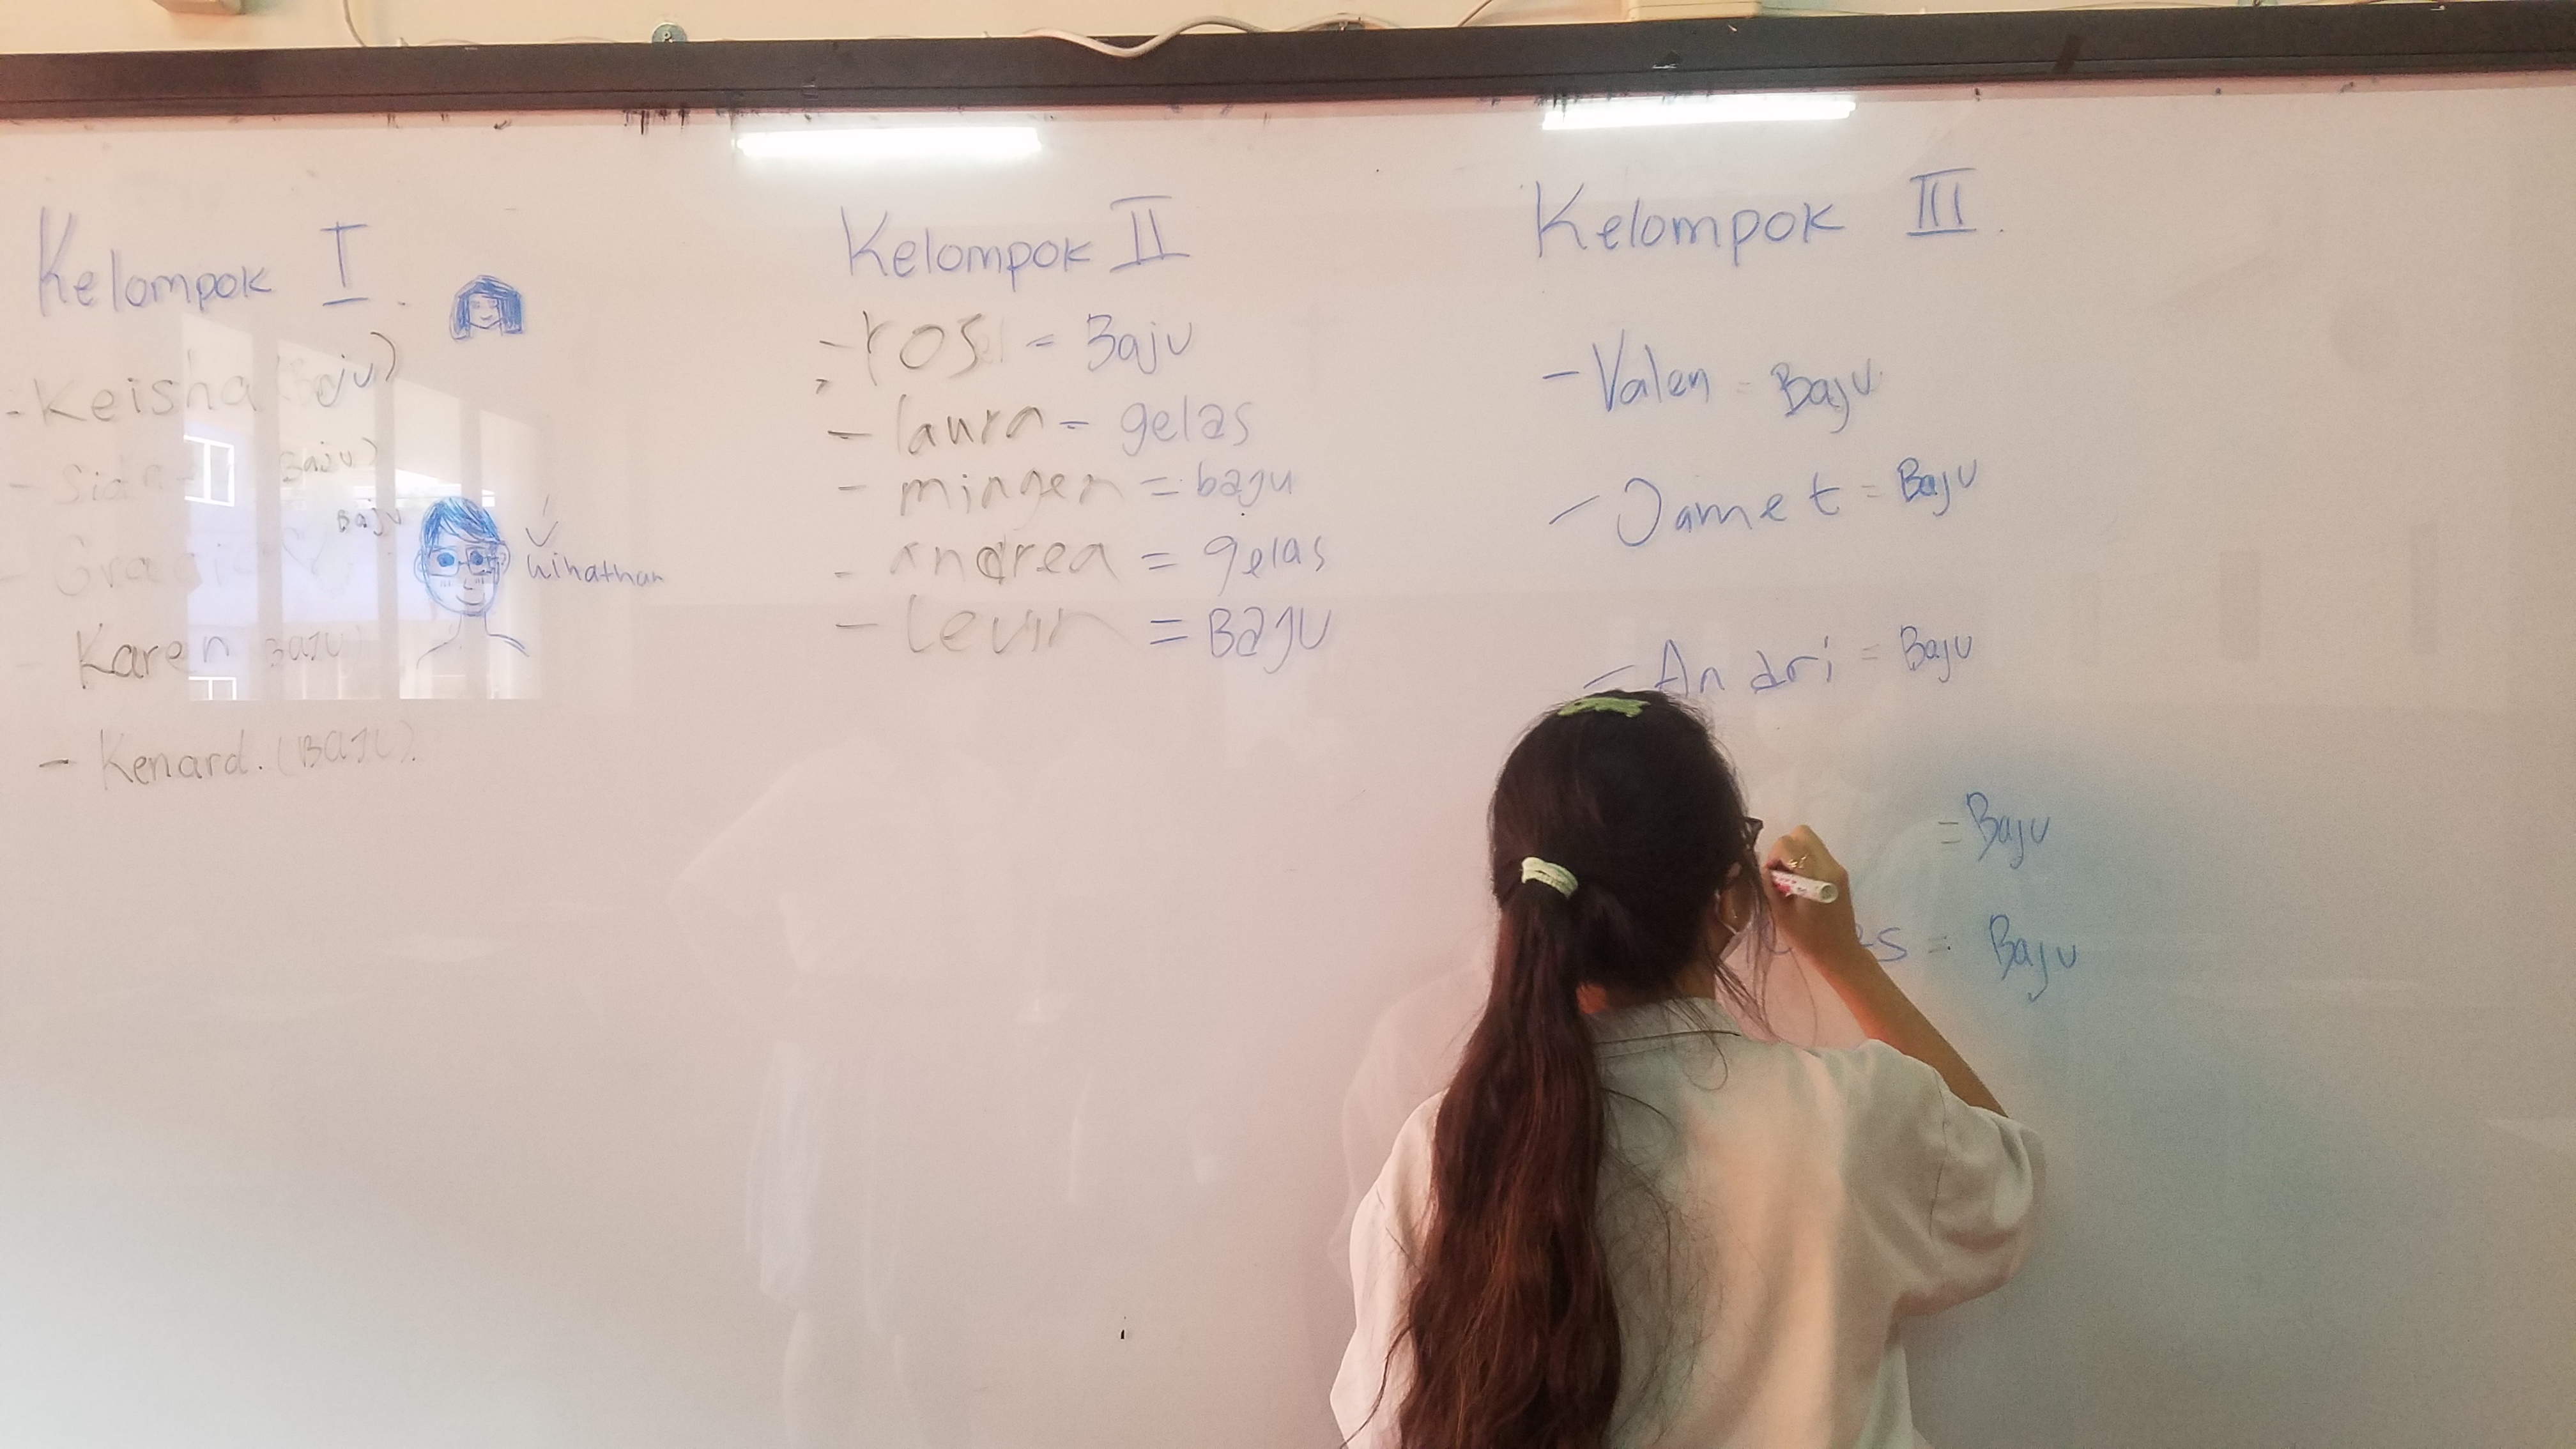 Kelompok I.
- Keisha (Baju)
- Sidn (Baju)
- Gracie Baju
Karen BAJU)
- Kenard. (BAJU).
Kelompok II
- ros = Baju
- laura = gelas
- mingen = baju
- andrea = gelas
- levin = BaJU
Kelompok III.
- Valen = Baju
- Jamet = Baju
- Andri = Baju
= Baju
es = Baju